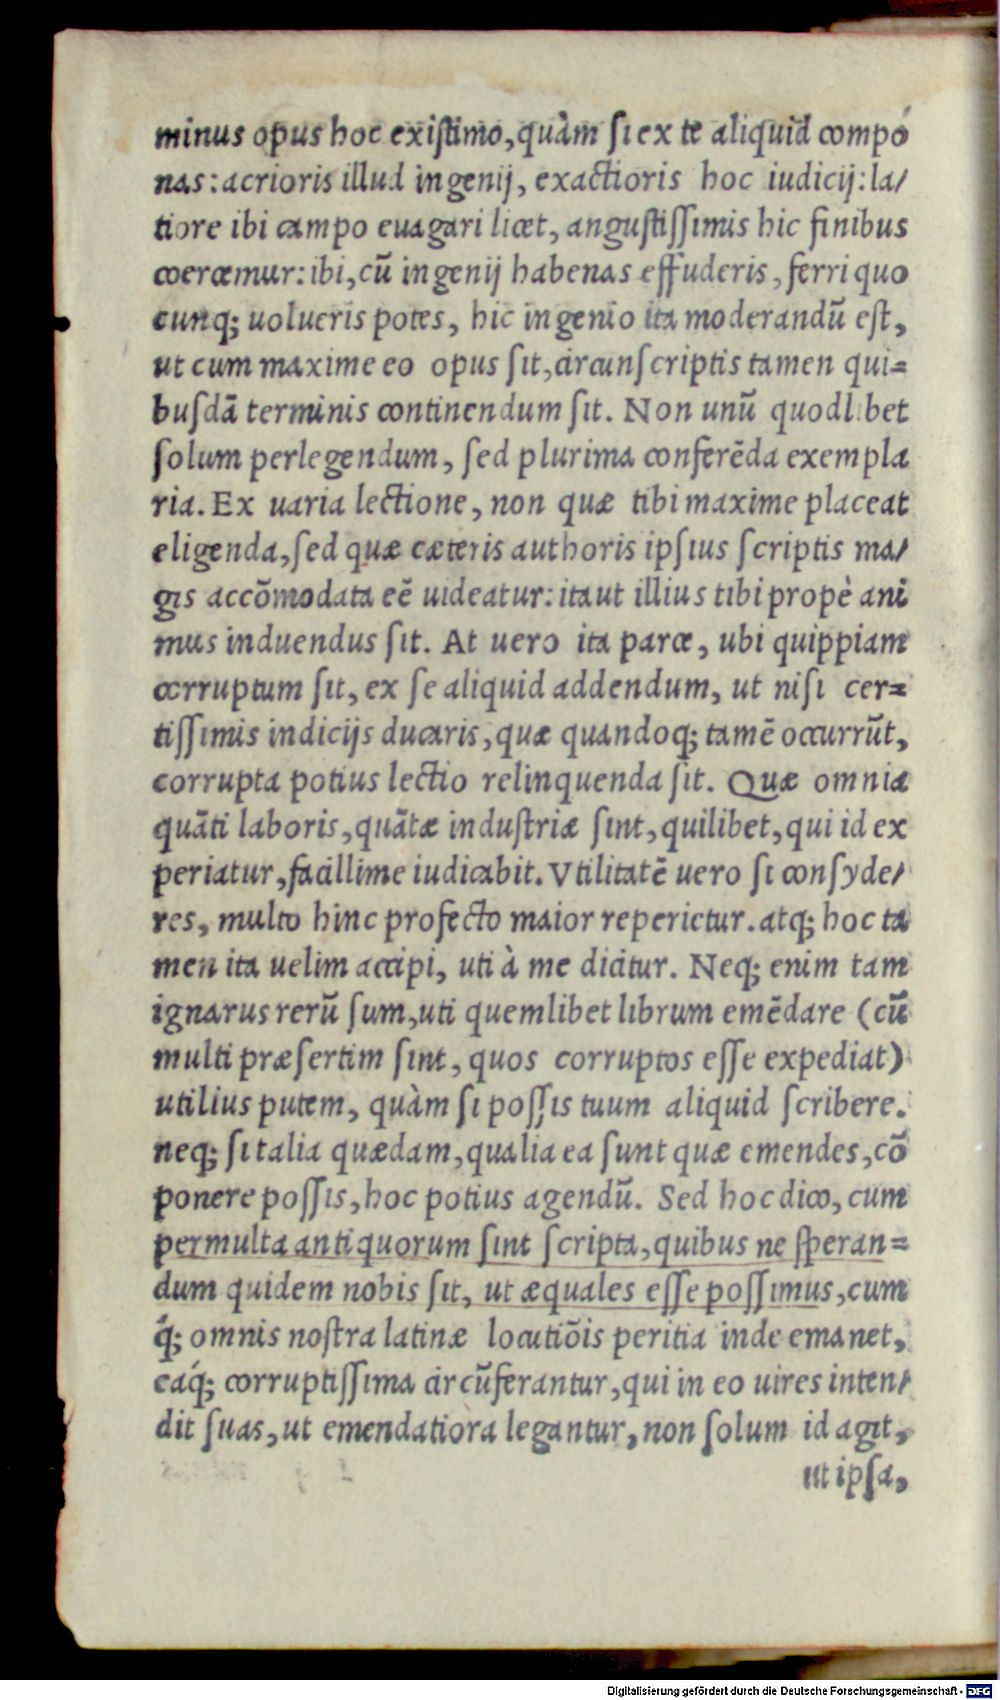 minus opus hoc existimo, quàm si ex te aliquid compó
nas: acrioris illud ingenij, exactioris hoc iudicij: la/
tiore ibi campo euagari licet, angustissimis hic finibus
coercemur: ibi, cū ingenij habenas effuderis, ferri quo
cunq; uolueris potes, hic ingenio ita moderandū est,
ut cum maxime eo opus sit, circunscriptis tamen qui=
busdā terminis continendum sit. Non unū quodlibet
solum perlegendum, sed plurima conferēda exempla
ria. Ex uaria lectione, non quæ tibi maxime placeat
eligenda, sed quæ cæteris authoris ipsius scriptis ma/
gis accōmodata eē uideatur: ita ut illius tibi propè ani
mus induendus sit. At uero ita parce, ubi quippiam
corruptum sit, ex se aliquid addendum, ut nisi cer=
tissimis indicijs ducaris, quæ quandoq; tamē occurrūt,
corrupta potius lectio relinquenda sit. Quæ omnia
quāti laboris, quātæ industriæ sint, quilibet, qui id ex
periatur, facillime iudicabit. Vtilitatē uero si consyde/
res, multo hinc profecto maior reperietur. atq; hoc ta
men ita uelim accipi, uti à me dicitur. Neq; enim tam
ignarus rerū sum, uti quemlibet librum emēdare (cū
multi præsertim sint, quos corruptos esse expediat)
utilius putem, quàm si possis tuum aliquid scribere.
neq; si talia quædam, qualia ea sunt quæ emendes, cō
ponere possis, hoc potius agendū. Sed hoc dico, cum
permulta antiquorum sint scripta, quibus ne speran=
dum quidem nobis sit, ut æquales esse possimus, cum
q́; omnis nostra latinæ locutiōis peritia inde emanet,
eáq; corruptissima circūferantur, qui in eo uires inten/
dit suas, ut emendatiora legantur, non solum id agit,
ut ipsa,
Digitalisierung gefördert durch die Deutsche Forschungsgemeinschaft - DFG